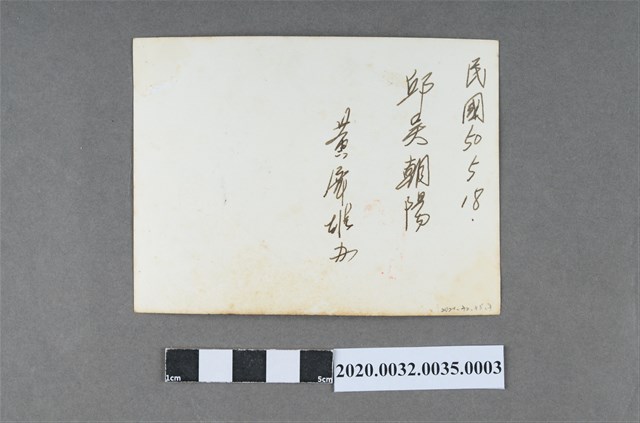 民國50.5.18.
邱吳朝陽
黃
雄
1cm
5cm
2020.0032.0035.0003